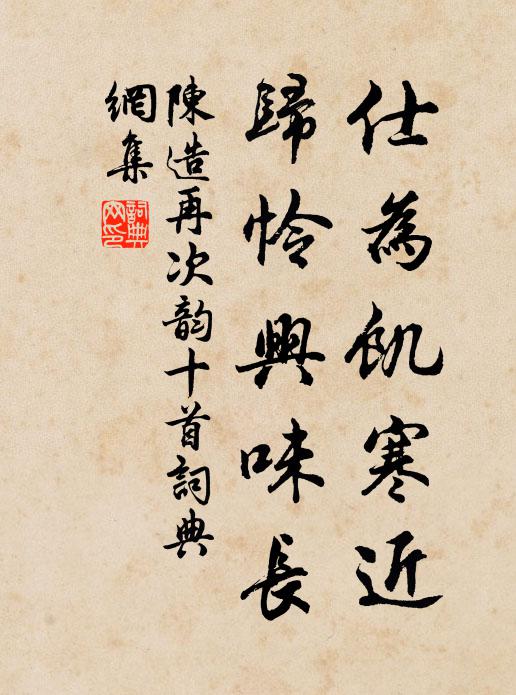 仕為飢寒近
歸怜興味長
陳造再次韵十首詞典
網集
詞典
网印